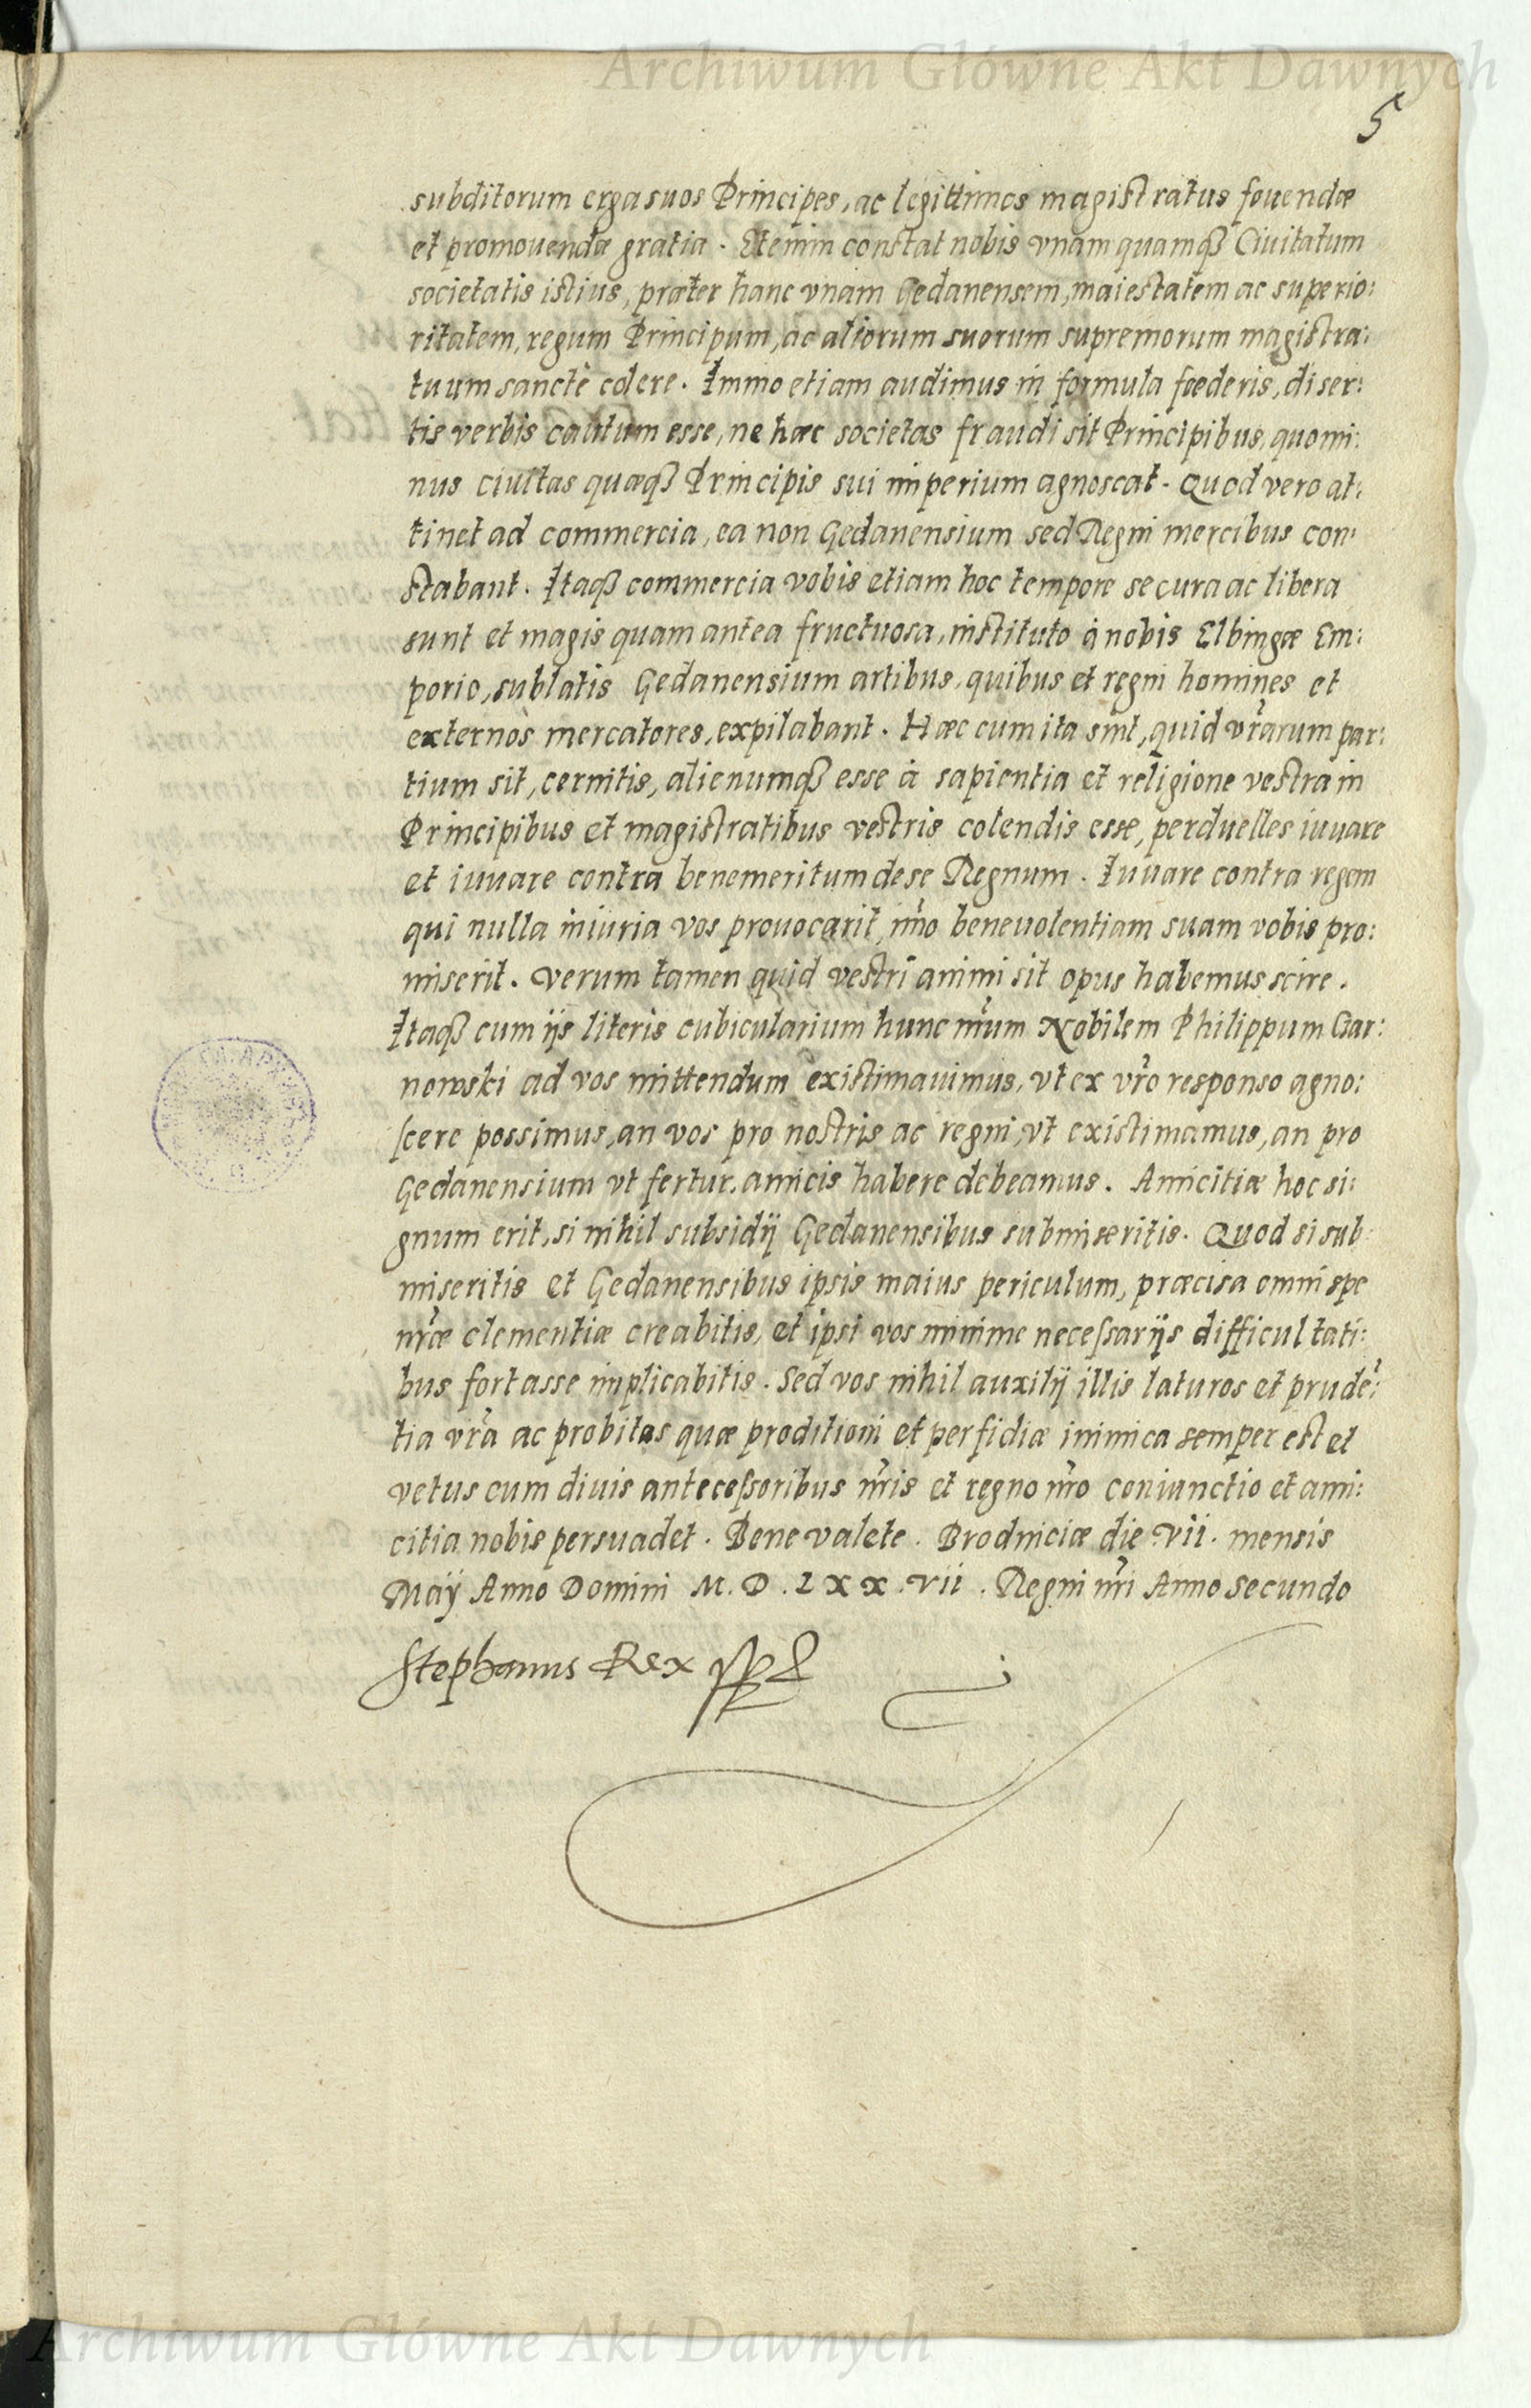 Archiwum Główne Akt Dawnych
5
subditorum erga suos Principes, ac legittimos magistratus fouendæ
et promouendæ gratia. Etenim constat nobis vnam quamqȝ Ciuitatum
societatis istius, præter hanc vnam Gedanensem, maiestatem ac superio:
ritatem, regum Principum, ac aliorum suorum supremorum magistra:
tuum sanctè colere. Immo etiam audimus in formula fœderis, diser:
tis verbis cautum esse, ne hæc societas fraudi sit Principibus, quomi:
nus ciuitas quæqȝ Principis sui imperium agnoscat. Quod vero at:
tinet ad commercia, ea non Gedanensium sed Regni mercibus con:
stabant. Itaqȝ commercia vobis etiam hoc tempore secura ac libera
sunt et magis quam antea fructuosa, instituto à nobis Elbingæ Em:
porio, sublatis Gedanensium artibus, quibus et regni homines et
externos mercatores, expilabant. Hæc cum ita sint, quid vr̃arum par:
tium sit, cernitis, alienumqȝ esse à sapientia et religione vestra in
Principibus et magistratibus vestris colendis esse, perduelles iuuare
et iuuare contra benemeritum de se Regnum. Iuuare contra regem
qui nulla iniuria vos prouocarit, im̃o beneuolentiam suam vobis pro:
miserit. Verum tamen quid vestri animi sit opus habemus scire.
Itaqȝ cum ijs literis cubicularium hunc nr̃um Nobilem Philippum Gar:
nowski ad vos mittendum existimauimus, vt ex vr̃o responso agno:
scere possimus, an vos pro nostris ac regni, vt existimamus, an pro
Gedanensium vt fertur, amicis habere debeamus. Amicitiæ hoc si:
gnum erit, si nihil subsidij Gedanensibus submiseritis. Quod si sub:
miseritis et Gedanensibus ipsis maius periculum, præcisa omni spe
nr̃æ clementiæ creabitis, et ipsi vos minime necessarijs difficultati:
bus fortasse implicabitis. Sed vos nihil auxilij illis laturos et prudẽ:
tia vr̃a ac probitas quæ proditioni et perfidiæ inimica semper est et
vetus cum diuis antecessoribus nr̃is et regno nr̃o coniunctio et ami:
citia nobis persuadet. Bene valete. Brodniciæ die vii. mensis
Maÿ Anno Domini M. D. LXX. vii. Regni nr̃i Anno Secundo
Stephanus Rex
Archiwum Główne Akt Dawnych